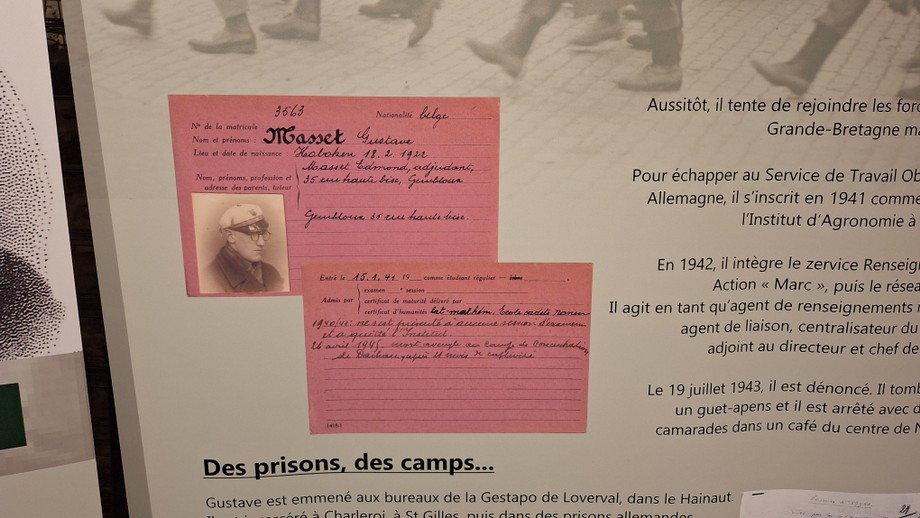 3563
Nationalité belge
N° de la matricule
Nom et prénoms : Masset Gustave
Lieu et date de naissance : Haboken 18.2.1922
Nom, prénoms, profession et adresse des parents, tuteur
Masset Edmond, adjudant,
35 rue haute bise, Gembloux
Gembloux 35 rue haute bise.
Entré le 15.1.41 19 comme étudiant régulier —
Admis par
examen session
certificat de maturité délivré par
certificat d'humanités lat mathém. Ecole cadets Namur
1940/41: ne s'est présenté à aucune session d'examens
et a quitté l'Institut.
26 avril 1945 mort aveugle au camp de Concentration
de Dachau, après 21 mois de captivité
1416 I
Aussitôt, il tente de rejoindre les for
Grande-Bretagne ma
Pour échapper au Service de Travail Ob
Allemagne, il s'inscrit en 1941 comme
l'Institut d'Agronomie à
En 1942, il intègre le zervice Renseig
Action « Marc », puis le résea
Il agit en tant qu'agent de renseignements
agent de liaison, centralisateur du
adjoint au directeur et chef de
Le 19 juillet 1943, il est dénoncé. Il tomb
un guet-apens et il est arrêté avec
camarades dans un café du centre de N
Des prisons, des camps...
Gustave est emmené aux bureaux de la Gestapo de Loverval, dans le Hainaut.
Il est incarcéré à Charleroi, à St Gilles, puis dans des prisons allemandes